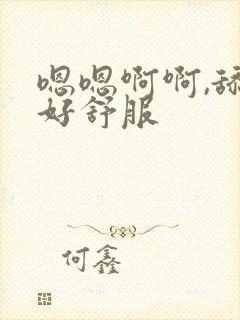 嗯嗯啊啊,舔
好舒服
何鑫